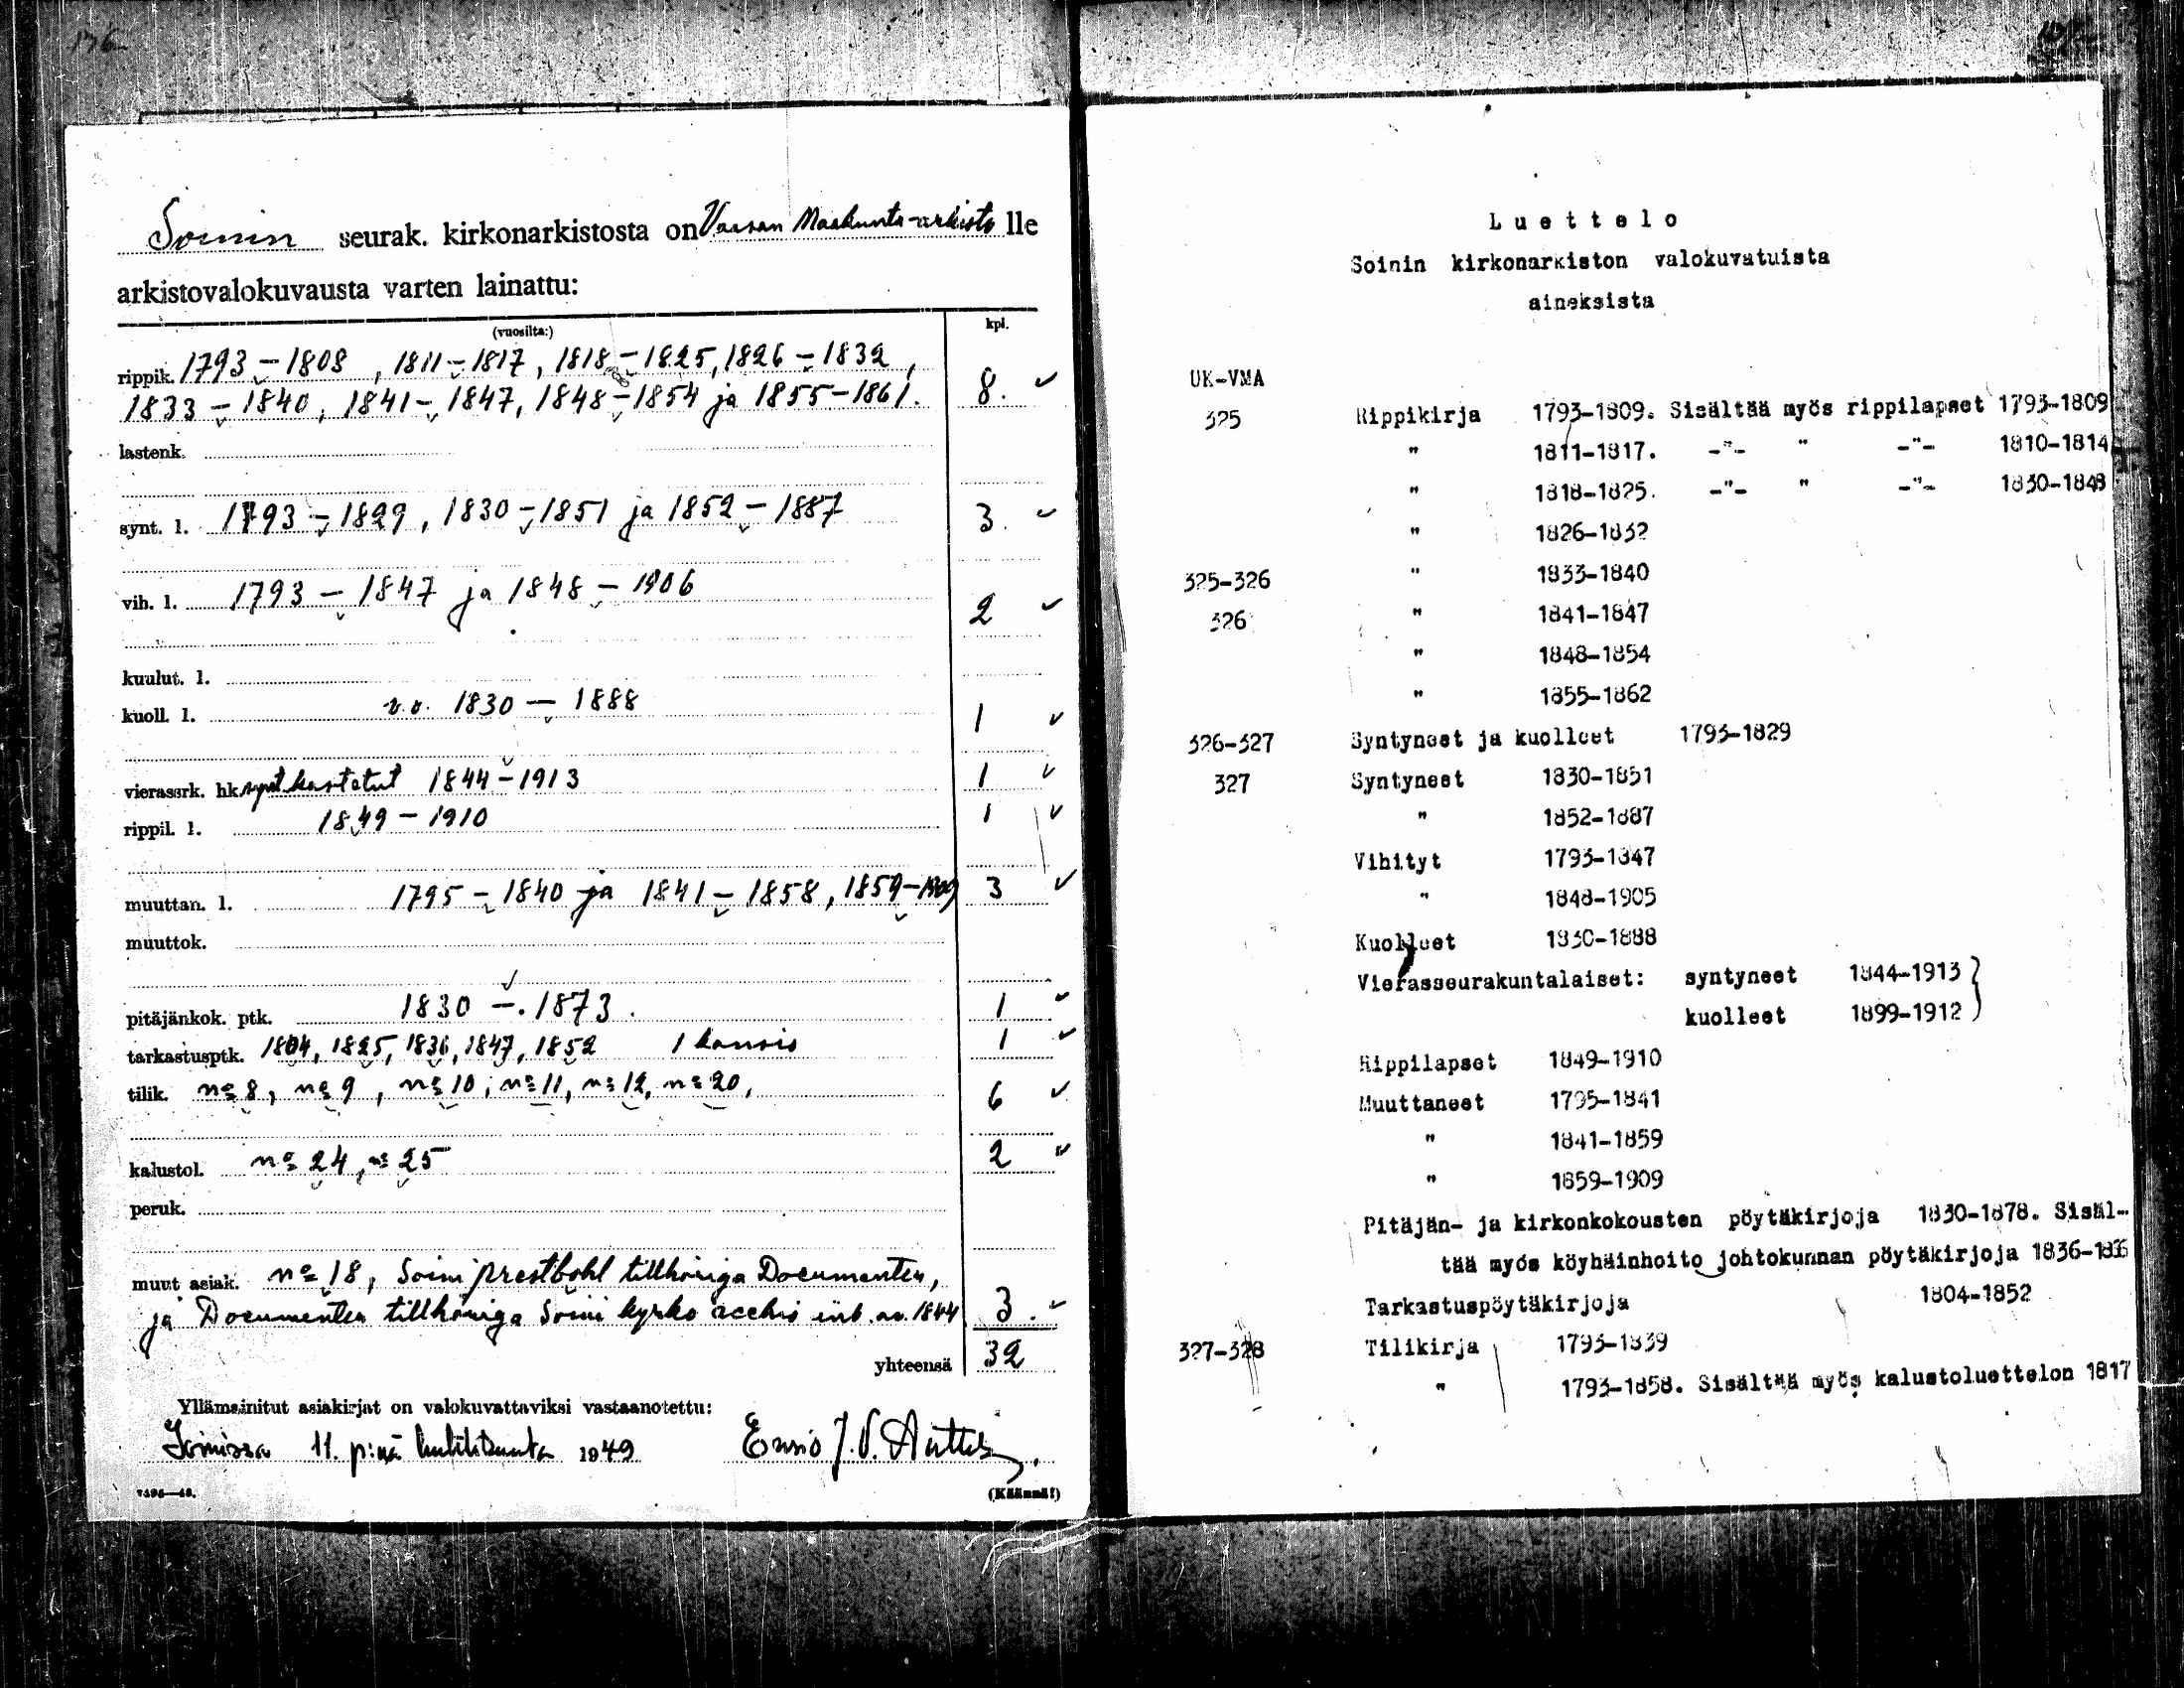 136
Soinin seurak. kirkonarkistosta on Vaasan Maakunta-arkisto lle
arkistovalokuvausta varten lainattu:
(vuosilta:) kpl.
rippik. 1793 – 1808, 1811 – 1817, 1818 – 1825, 1826 – 1832,
1833 – 1840, 1841 – 1847, 1848 – 1854 ja 1855 – 1861. 8. ✓
lastenk.
synt. l. 1793 – 1829, 1830 – 1851 ja 1852 – 1887 3. ✓
vih. l. 1793 – 1847 ja 1848 – 1906 2 ✓
kuulut. l.
kuoll. l. v.v. 1830 – 1888 1 ✓
vierassrk. hk. synt. kastetut 1844 – 1913 1 ✓
rippil. l. 1849 – 1910 1 ✓
muuttan. l. 1795 – 1840 ja 1841 – 1858, 1859 – 1909 3 ✓
muuttok.
pitäjänkok. ptk. 1830 – 1873. 1 ✓
tarkastusptk. 1804, 1825, 1836, 1847, 1852 1 kansio 1 ✓
tilik. nº 8, nº 9, nº 10, nº 11, nº 12, nº 20, 6 ✓
kalustol. nº 24, nº 25 2 ✓
peruk.
muut asiak. nº 18, Soini prestbohl tillhöriga Documenter,
ja Documenter tillhöriga Soini kyrko 3. ✓
yhteensä 32
Yllämainitut asiakirjat on valokuvattaviksi vastaanotettu:
Soinissa 11. p:nä huhtikuuta 1949 Ensio J. V.
(Käännä!)
Luettelo
Soinin kirkonarkiston valokuvatuista
aineksista
UK-VMA
325 Rippikirja 1793-1809. Sisältää myös rippilapset 1793-1809
" 1811-1817. -"- " -"- 1810-1814
" 1818-1825. -"- " -"- 1830-1848
" 1826-1832
325-326 " 1833-1840
326 " 1841-1847
" 1848-1854
" 1855-1862
326-327 Syntyneet ja kuolleet 1793-1829
327 Syntyneet 1830-1851
" 1852-1887
Vihityt 1793-1847
" 1848-1905
Kuolleet 1830-1888
Vierasseurakuntalaiset: syntyneet 1844-1913 }
kuolleet 1899-1912
Rippilapset 1849-1910
Muuttaneet 1795-1841
" 1841-1859
" 1859-1909
Pitäjän- ja kirkonkokousten pöytäkirjoja 1830-1878. Sisäl-
tää myös köyhäinhoito johtokunnan pöytäkirjoja 1836-1866
Tarkastuspöytäkirjoja 1804-1852
327-328 Tilikirja 1793-1839
" 1793-1858. Sisältää myös kalustoluettelon 1817